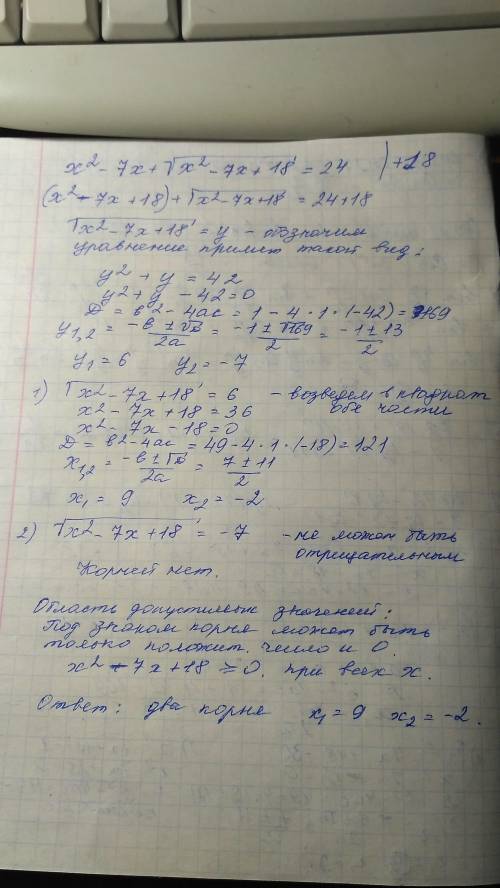 x² - 7x + √(x² - 7x + 18) = 24 | +18
(x² - 7x + 18) + √(x² - 7x + 18) = 24 + 18
√(x² - 7x + 18) = y - обозначим
уравнение примет такой вид:
y² + y = 42
y² + y - 42 = 0
D = в² - 4ac = 1 - 4 · 1 · (-42) = 169
y₁,₂ = (-в ± √D)/2a = (-1 ± √169)/2 = (-1 ± 13)/2
y₁ = 6 y₂ = -7
1) √(x² - 7x + 18) = 6 - возведем в квадрат
x² - 7x + 18 = 36 обе части
x² - 7x - 18 = 0
D = в² - 4ac = 49 - 4 · 1 · (-18) = 121
x₁,₂ = (-в ± √D)/2a = (7 ± 11)/2
x₁ = 9 x₂ = -2
2) √(x² - 7x + 18) = -7 - не может быть
отрицательным
Корней нет.
Область допустимых значений:
Под знаком корня может быть
только положит. число и 0.
x² - 7x + 18 ≥ 0, при всех x.
Ответ: два корня x₁ = 9 x₂ = -2.